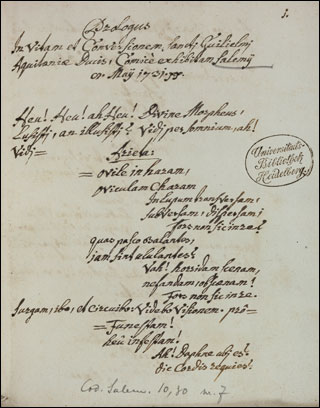 1.
Prologus
In Vitam et Conversionem Sancti Guilielmi
Aquitaniæ Ducis; Comicè exhibitam Salemÿ
en Maÿ 1731.
Heu! Heu! ah Heu! Divine Morpheus,
Lusisti, an illusisti? Vidi per somnium, ah!
Vidi =
Arieta.
= ovile in haram,
oviculam Charam
In lupum transversam,
subversam, dispersam;
fors non sic in re!
quas pasco balantes,
jam sint ululantes?
Vah! horridam scenam,
nefandam, obscænam!
Fors non sic in re.
surgam, ibo, et circuibo. Videbo Visionem. prô =
= Funestam!
heu infestam!
Ah! Daphne ubi es?
die Cordis requies!
Universitäts-
Bibliothek
Heidelberg
Cod. Salem. 10,30 nr. 7